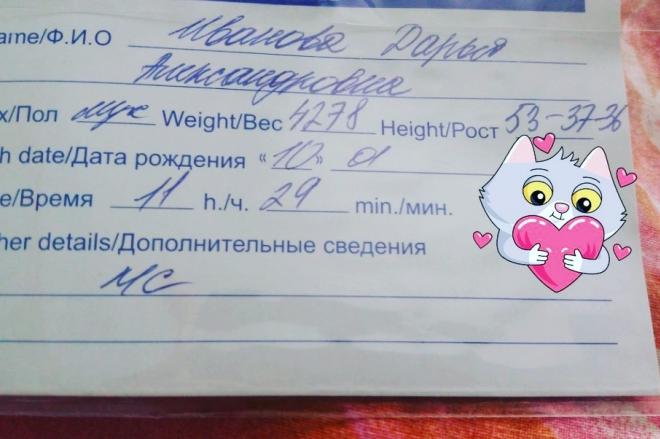 ame/Ф.И.О Иванова Дарья
Александровна
x/Пол муж Weight/Вес 4278 Height/Рост 53-37-36
h date/Дата рождения «10» 01
e/Время 11 h./ч. 29 min./мин.
her details/Дополнительные сведения
МС